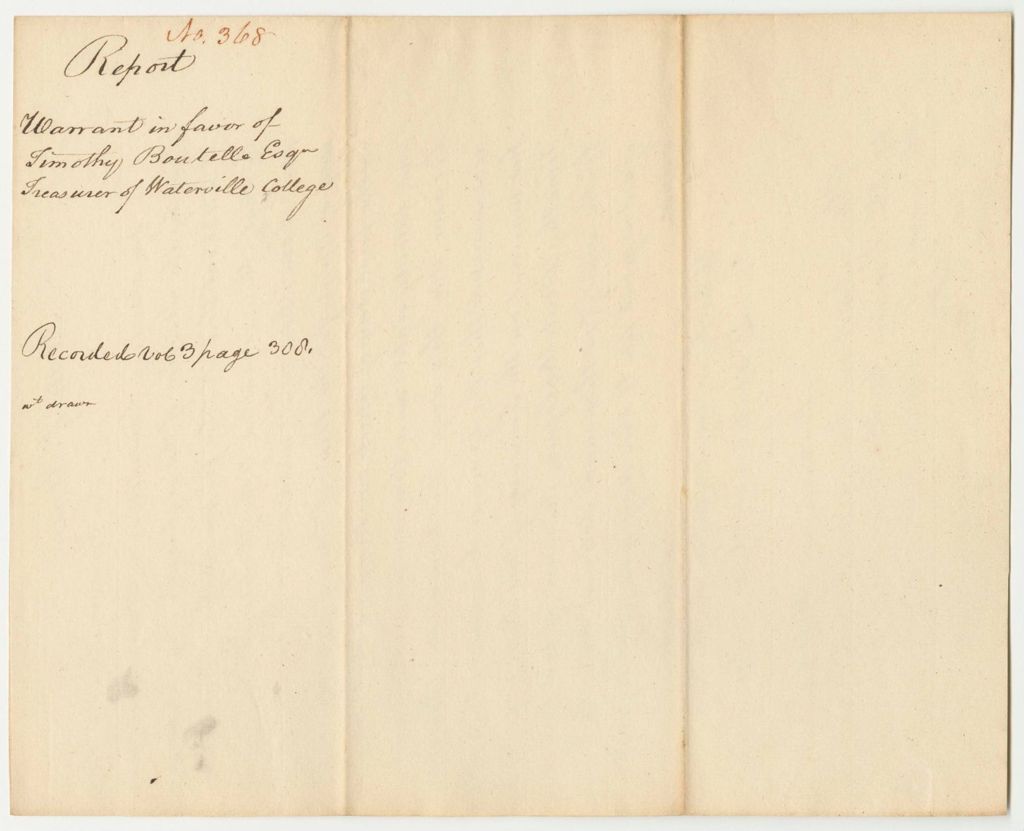 No. 368
Report
Warrant in favor of
Timothy Boutelle Esqr
Treasurer of Waterville College
Recorded vol 3 page 308.
wt drawn